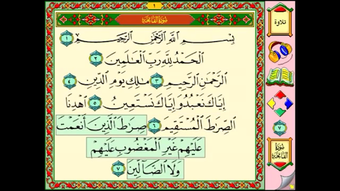 تلاوة
١
سورة الفاتحة
بِسْمِ اللَّهِ الرَّحْمَٰنِ الرَّحِيمِ ١
الْحَمْدُ لِلَّهِ رَبِّ الْعَالَمِينَ ٢
الرَّحْمَٰنِ الرَّحِيمِ ٣ مَالِكِ يَوْمِ الدِّينِ ٤
إِيَّاكَ نَعْبُدُ وَإِيَّاكَ نَسْتَعِينُ ٥ اهْدِنَا
الصِّرَاطَ الْمُسْتَقِيمَ ٦ صِرَاطَ الَّذِينَ أَنْعَمْتَ
عَلَيْهِمْ غَيْرِ الْمَغْضُوبِ عَلَيْهِمْ
وَلَا الضَّالِّينَ ٧
٧
سورة
الفاتحة